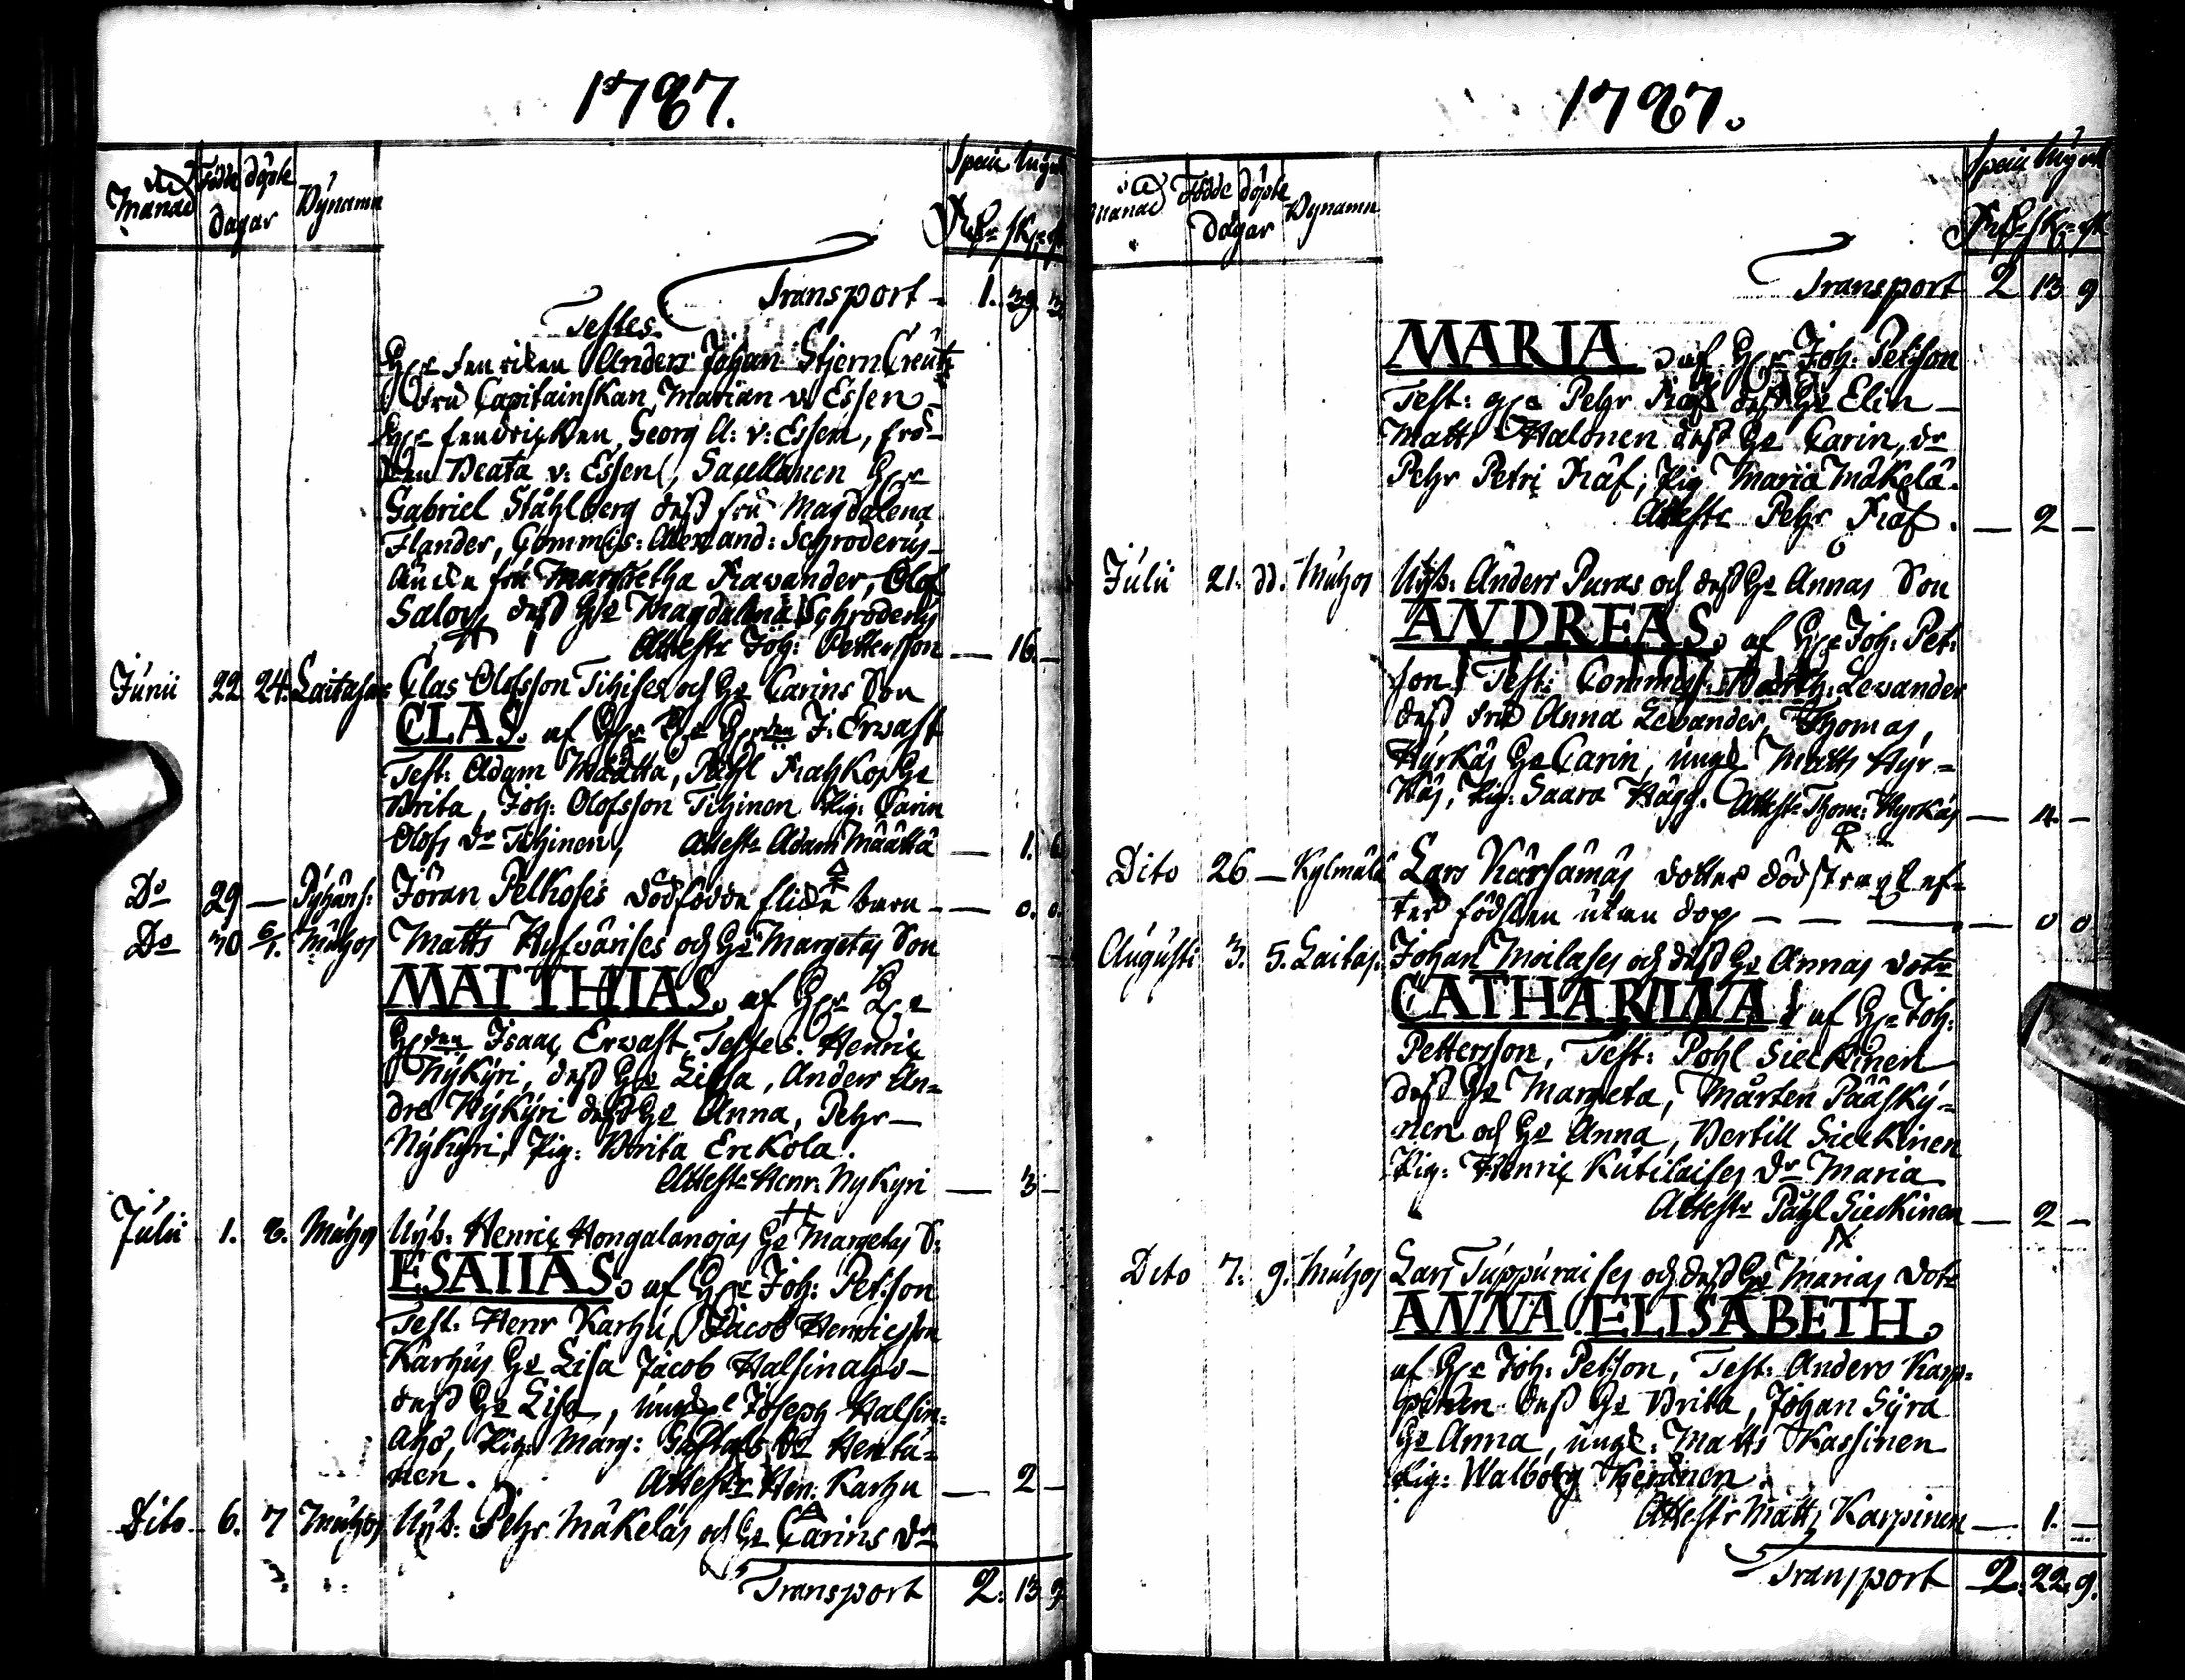 1787.
Månad Födde döpte Bynamn Speciē Mynt
Dagar RDr sk. rst
Transport - 1. 39. 3.
Testes.
Hr Fendriken Anders Johan StjernCreutz
Fru Capitainskan Marian v. Essen
Hr fendricken Georg A: v: Essen, frö-
ken Beata v: Essen, Sacellanen Hr
Gabriel Ståhlberg dess fru Magdalena
Flander, Commiss: Alexand: Schroderus
Margretha Fravander, Olof
Salov dess H: Magdalena Schroderus
Attestr Joh: Pettersson — 16. —
Junii 22 24. Laitasar Clas Olofsson Tihises och H: Carins Son
CLAS. af J. Erwast
Test: Adam Määttä, Påhl H:
Brita, Joh: Olofsson Tihinen Pig: Carin
Olofs Dr Tihinen, Attestr Adam Määttä — 1. 6
Do 29 — Pyhäns: Jöran Pelkoses dödfödde barn — 0. 0.
Do 30 6/7. Muhos Matts Hyfvärises och H: Margetas Son
MATTHIAS. af Hr
Isaac Erwast, Testes. Henric
Nykyri, dess H: Lissa, Anders An-
dre Nykyri dess H: Anna, Pehr
Nykyri, Pig: Brita Erckola.
Attestr Henr: Nykyri — 3 —
Julii 1. 8. Muhos Nyb: Henric Hongalanojas H: Margetas S:
ESAIIAS. af Hr Joh: Pet:son
Test: Henr Karhu, Jacob Henricsson
Karhus H: Lisa Jacob Halsinaho
dess H: Lisa, ungk Joseph Halsin-
aho, Pig: Marg: Gustafs Dr Hentu-
nen. Attestr Hen: Karhu — 2 —
Dito 6. 7 Muhos Nyb: Pehr Mäkeläs och H: Carins Dr
Transport 2. 13. 9.
1787.
Månad Födde döpte Bynamn Speciē Mynt
Dagar RDr sk. rst
Transport 2 13 9
MARIA af Hr Joh: Pet:son
Test: Hr Pehr Kiaf dess H: Elin
Matts Halonen dess H: Carin, dr
Pehr Petri Kiaf; Pig Maria Mäkelä.
Attestr Pehr Kiaf. — 2 —
Julii 21. dd. Muhos Nyb: Anders Puras och dess H: Annas Son
ANDREAS. af Hr Joh: Pet:
son Test: Commiss: Levander
dess fru Anna Levander, Thomas
Hyrkäs H: Carin, ungk Matts Hyr-
käs, Pig: Saara Hägg. Attestr Thom: Hyrkäs — 4. —
Dito 26 — Kylmälä Lars Kärsämäs dotter död straxt ef-
ter födslen utan dop — — — 0 0
Augusti 3. 5. Laitas: Johan Moilases och dess H: Annas dotr
CATHARINA af Hr Joh:
Pettersson, Test: Påhl Sieckinen
dess H: Margeta, Mårten Pääsky-
nen och H: Anna, Bertill Sieckinen
Pig: Henric Kutilaises Dr Maria
Attestr Påhl Sieckinen — 2 —
Dito 7. 9. Muhos Lars Tuppuraises och dess H: Marias dotr
ANNA ELISABETH.
af Hr Joh: Pet:son, Test: Anders Karp-
pinen dess H: Brita, Johan Syrä
H: Anna, ungk: Matts Kassinen
Pig: Walborg Keränen
Attestr Matts Karpinen — 1. —
Transport 2. 22. 9.